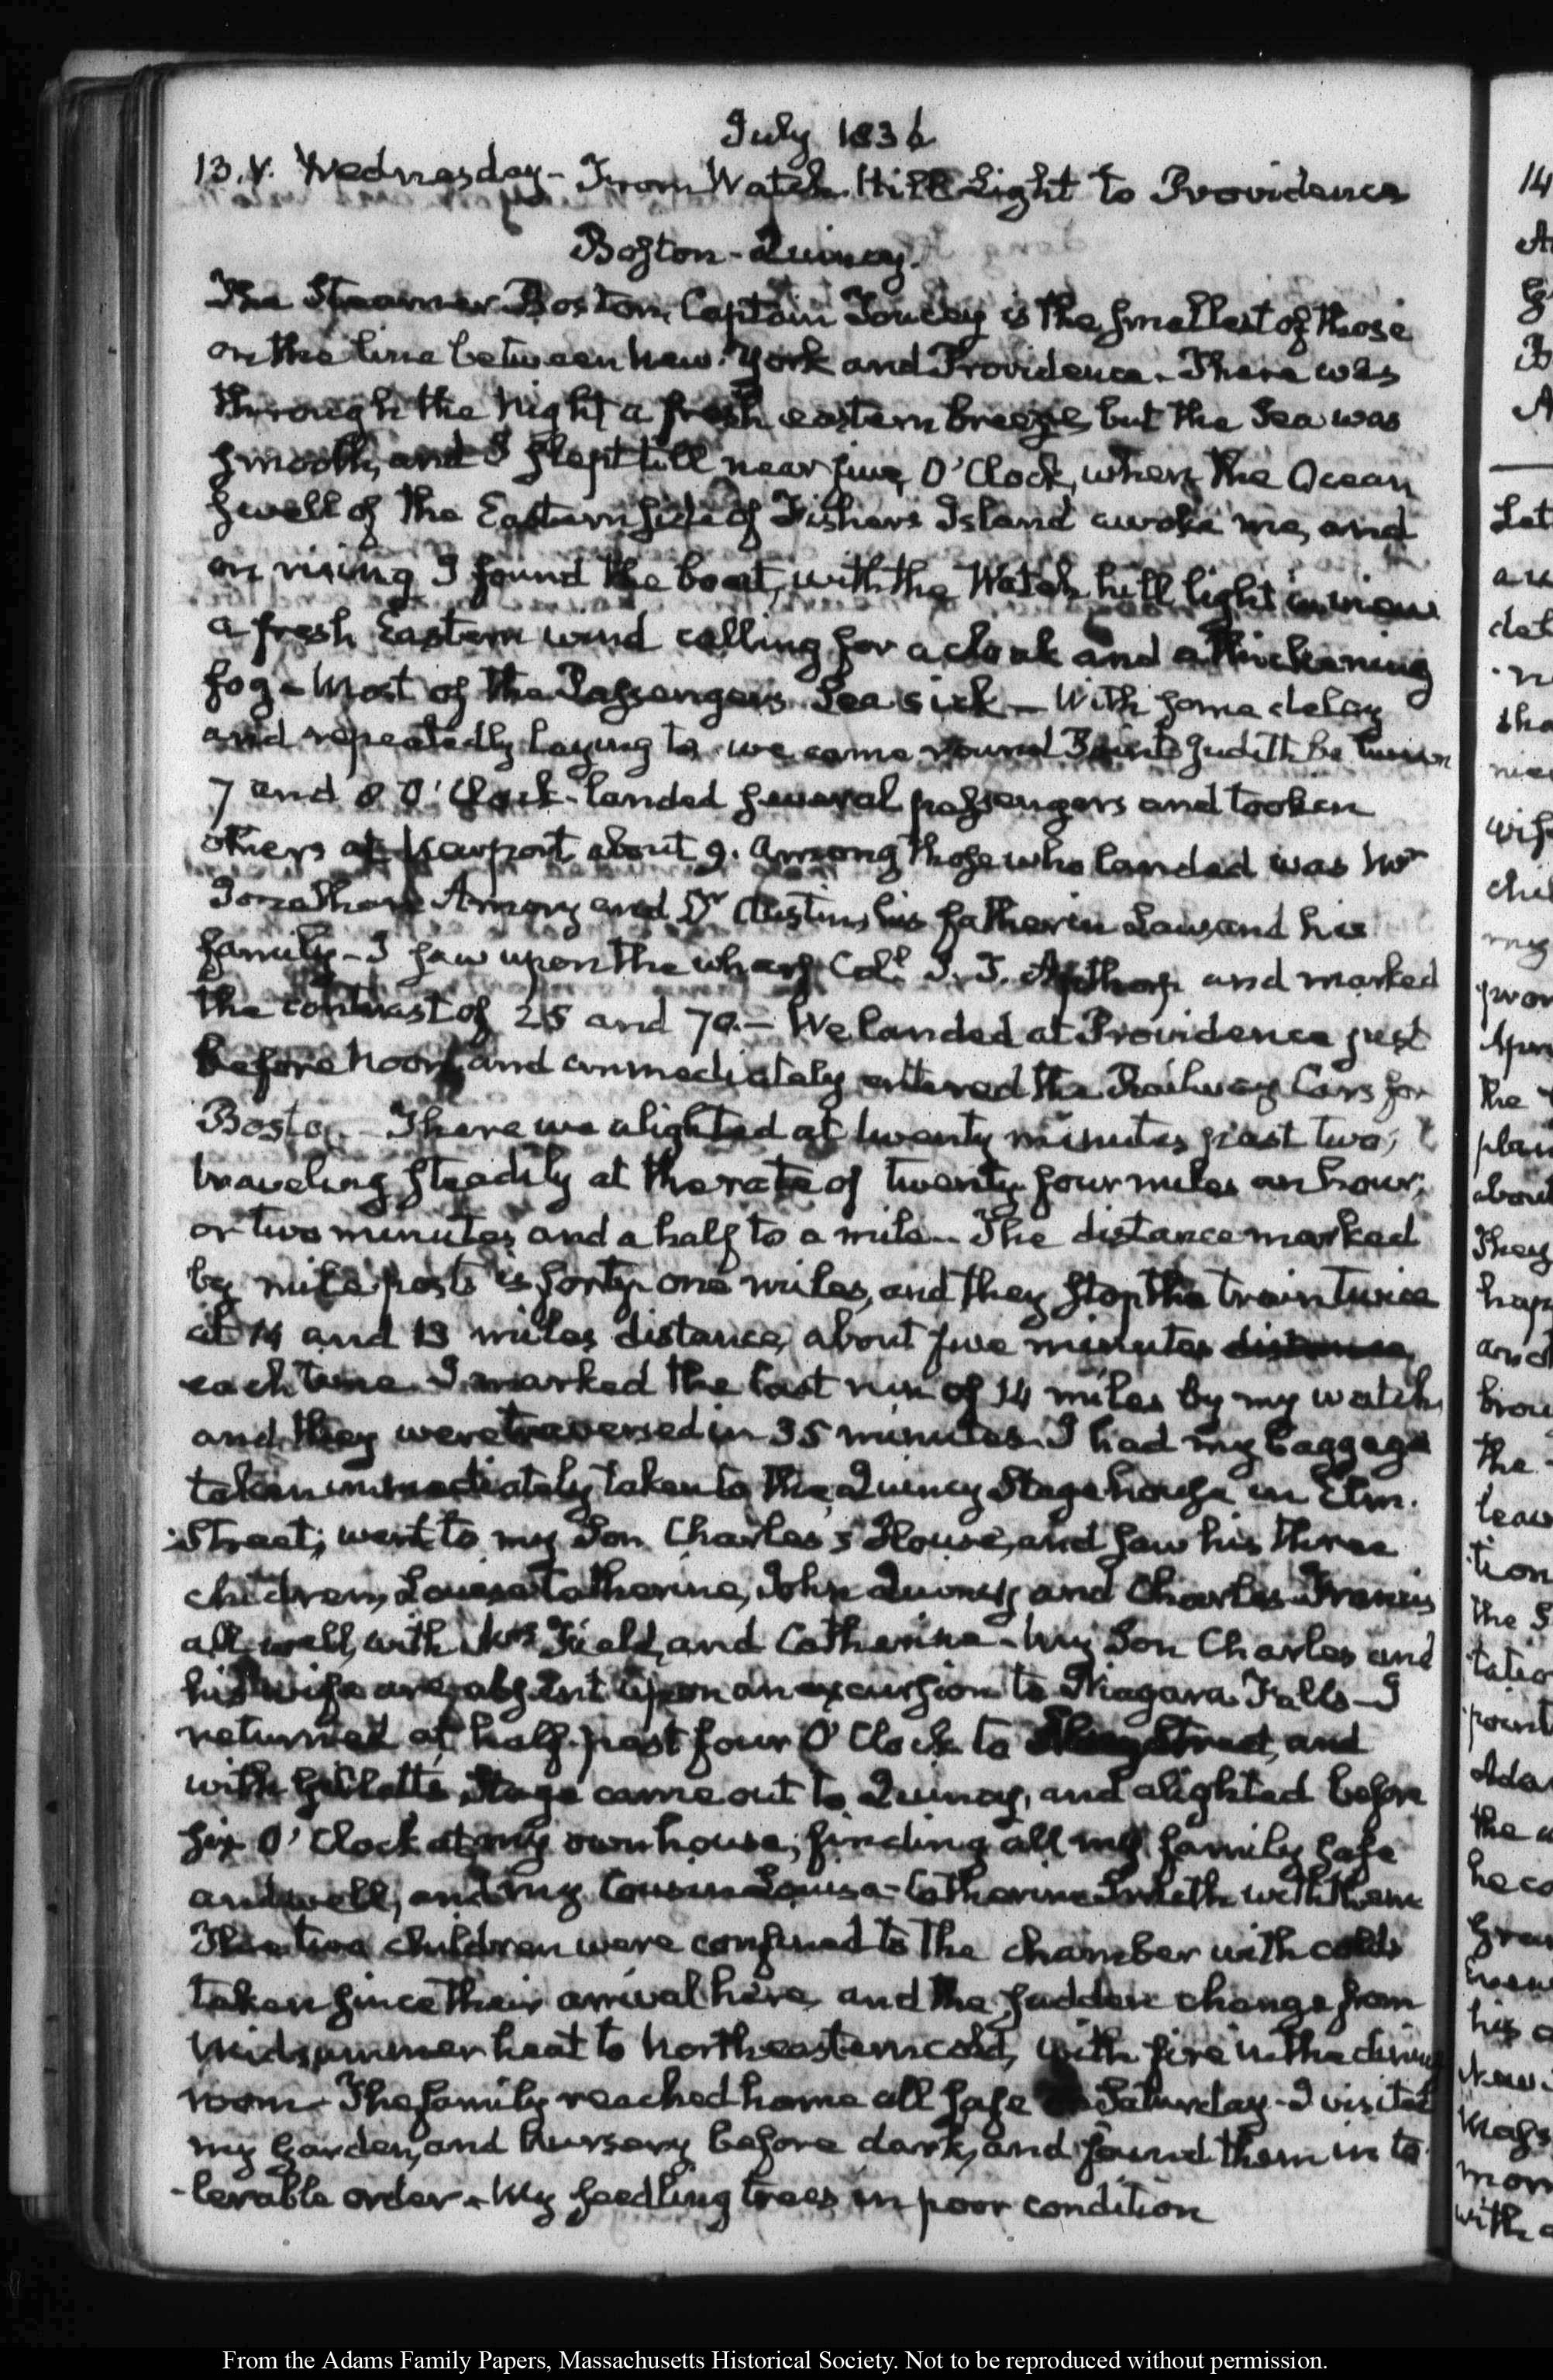 July 1836
13. V. Wednesday - From Watch Hill Light to Providence
Boston - Quincy.
The Steamer Boston, Captain Toucey is the smallest of those
on the line between New-York and Providence. There was
through the Night a fresh eastern breeze, but the Sea was
smooth, and I slept till near five O'Clock, when the Ocean
swell of the Eastern side of Fishers Island awoke me, and
on rising I found the boat, with the Watch hill light in view
a fresh Eastern wind calling for a cloak and a thickening
fog - Most of the Passengers Sea sick - With some delay
and repeatedly laying to, we came round Point Judith between
7 and 8 O'Clock - landed several passengers and took in
others at Newport about 9. Among those who landed was Mr
Jonathan Amory and Dr Austin, his father in Law, and his
family - I saw upon the wharf Coll. J. T. Apthorp and marked
the contrast of 25 and 70. - We landed at Providence just
before Noon, and immediately entered the Railway Cars for
Boston - There we alighted at twenty minutes past two,
traveling steadily at the rate of twenty four miles an hour,
or two minutes and a half to a mile - The distance marked
by mile posts is forty one miles, and they stop the train twice
at 14 and 13 miles distance, about five minutes distance
each time. I marked the last run of 14 miles by my watch,
and they were traversed in 35 minutes. I had my baggage
taken immediately taken to the Quincy Stage house in Elm.
Street; went to my Son Charles's House, and saw his three
children, Louisa Catherine, John Quincy and Charles Francis
all well, with Mrs Field, and Catherine - My Son Charles and
his wife are absent upon an excursion to Niagara Falls - I
returned at half-past four O'Clock to Elm Street, and
with Gillett's Stage came out to Quincy, and alighted before
six O'Clock at my own house, finding all my family safe
and well, and my Cousin Louisa-Catherine Smith with them
The two children were confined to the chamber with colds
taken since their arrival here, and the sudden change from
Midsummer heat to Northeastern cold, with fire in the dining
room - The family reached home all safe Saturday - I visited
my Garden, and Nursery before dark, and found them in to
-lerable order. My seedling trees in poor condition
14
Let
the
plan
about
They
hap
and
the
tion
the S
point
Ada
the
his
with
From the Adams Family Papers, Massachusetts Historical Society. Not to be reproduced without permission.